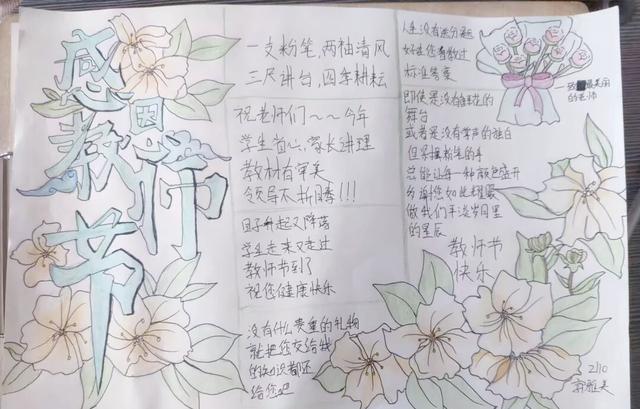 感恩教师节
一支粉笔,两袖清风
三尺讲台,四季耕耘
祝老师们~~今年
学生省心,家长讲理
教材有审美
领导不折腾!!!
日子升起又降落
学生走来又走过
教师节到了
祝您健康快乐
没有什么贵重的礼物
就把您交给我
的知识都还
给您吧
人生没有选分题
好在您曾教过
标准答案
一致 最美丽
的老师
即使是没有鲜花的
舞台
或者是没有掌声的独白
但紧握粉笔的手
总能让每一种颜色盛开
感谢您如此耀眼
做我们平淡岁月里
的星辰
教师节
快乐
210